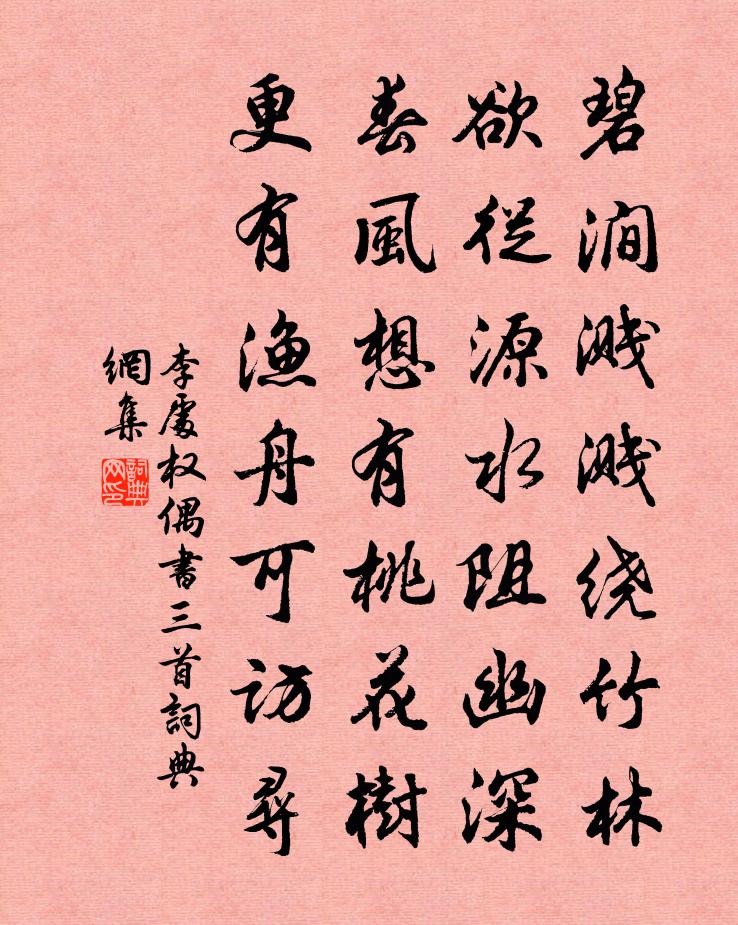 碧澗溅溅绕竹林
欲從源水阻幽深
春風想有桃花樹
更有漁舟可访尋
李處权偶書三首詞典
網集
詞典网印